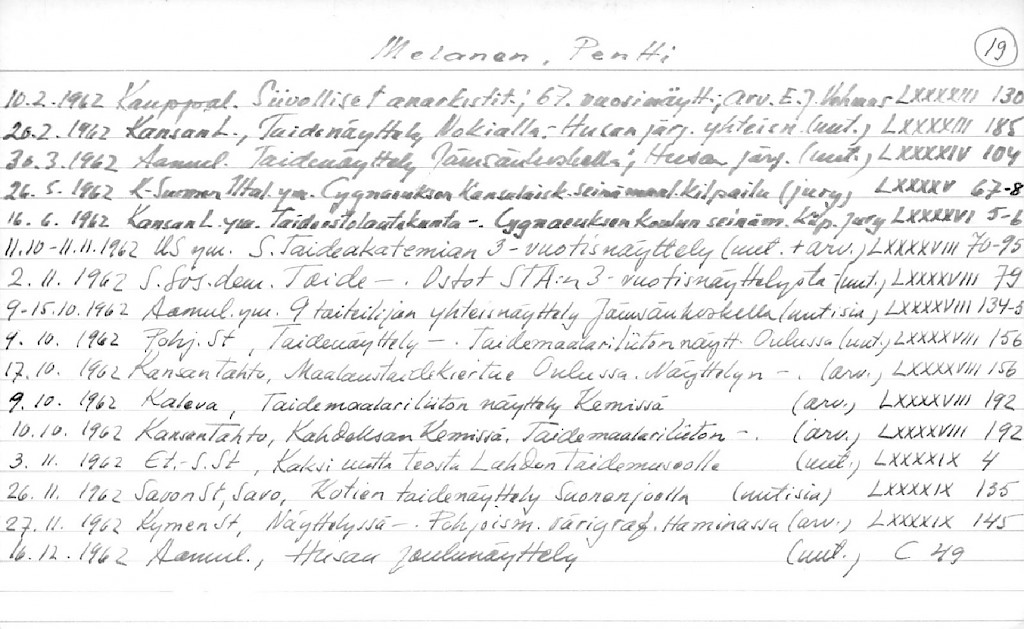 Melanen, Pentti 19
10.2.1962 Kauppal. Siivolliset anarkistit; 67. vuosinäytt.; arv. E.J. Vehmas LXXXXIII 130
26.2.1962 Kansan L., Taidenäyttely Nokialla - Husan järj. yhteisn. (uut.) LXXXXIII 185
30.3.1962 Aamul. Taidenäyttely Jämsänkoskella; Husan järj. (uut.) LXXXXIV 104
26.5.1962 K-Suomen Iltal. ym. Cygnaeuksen Kansalaisk. seinämaal. kilpailu (jury) LXXXXV 67-8
16.6.1962 Kansan L. ym. Taidetstolautakunta -. Cygnaeuksen koulun seinäm. kilp. jury LXXXXVI 5-6
11.10-11.11.1962 US ym. S. Taideakatemian 3-vuotisnäyttely (uut. + arv.) LXXXXVIII 70-95
2.11.1962 S. Sos. dem. Taide -. Ostot STA:n 3-vuotisnäyttelystä (uut.) LXXXXVIII 79
9-15.10.1962 Aamul. ym. 9 taiteilijan yhteisnäyttely Jämsänkoskella (uutisia) LXXXXVIII 134-5
9.10.1962 Pohj. St, Taidenäyttely -. Taidemaalariliiton näytt. Oulussa (uut.) LXXXXVIII 156
17.10.1962 Kansan Tahto, Maalaustaidekiertue Oulussa. Näyttelyn -. (arv.) LXXXXVIII 156
9.10.1962 Kaleva, Taidemaalariliiton näyttely Kemissä (arv.) LXXXXVIII 192
10.10.1962 Kansan Tahto, Kahdeksan Kemissä. Taidemaalariliiton -. (arv.) LXXXXVIII 192
3.11.1962 Et.-S.St, Kaksi uutta teosta Lahden Taidemuseolle (uut.) LXXXXIX 4
26.11.1962 Savon St, Savo, Kotien taidenäyttely Suonenjoella (uutisia) LXXXXIX 135
27.11.1962 Kymen St, Näyttelyssä -. Pohjoism. värigraf. Haminassa (arv.) LXXXXIX 145
16.12.1962 Aamul., Husan joulunäyttely (uut.) C 49